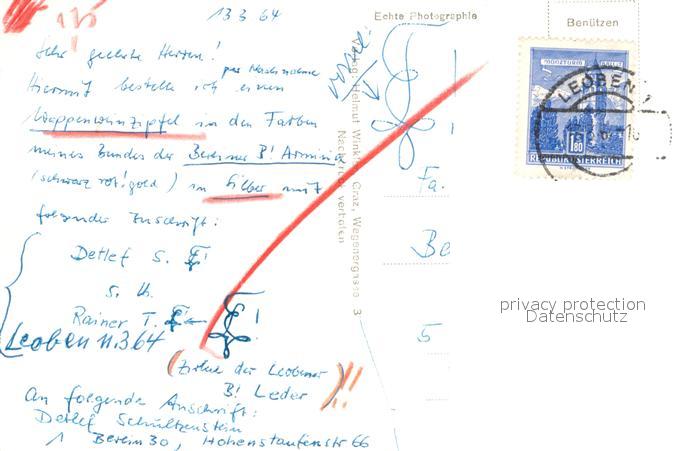 13 3 64
Sehr geehrte Herren!
per Nachnahme
Hiermit bestelle ich einen
Wappenweinzipfel in den Farben
meines Bundes der Berliner B! Arminia
(schwarz rot! gold) in Silber mit
folgender Inschrift:
Detlef S.
s. lb.
Rainer T.
Leoben 11.3 64
(Zirkel der Leobener
B! Leder)!!
An folgende Anschrift:
Detlef Schultzenstein
1 Berlin 30, Hohenstaufenstr 66
Echte Photographie
Helmut Winkler, Graz, Wagenergasse 3
Nachdruck verboten
Fa.
Be
5
Benützen
MÜNZTURM
HALL
1.80
REPUBLIK ÖSTERREICH
LEOBEN 1
privacy protection
Datenschutz